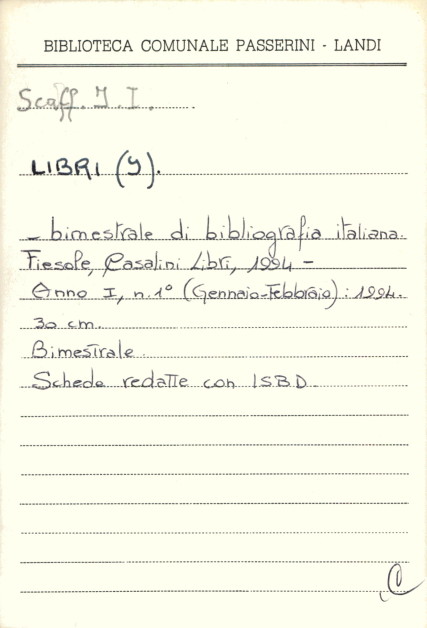 BIBLIOTECA COMUNALE PASSERINI - LANDI
Scaff. I. I.
LIBRI (I).
- bimestrale di bibliografia italiana.
Fiesole, Casalini Libri, 1994 -
Anno I, n. 1° (Gennaio-Febbraio): 1994.
30 cm.
Bimestrale
Schede redatte con ISBD.
C